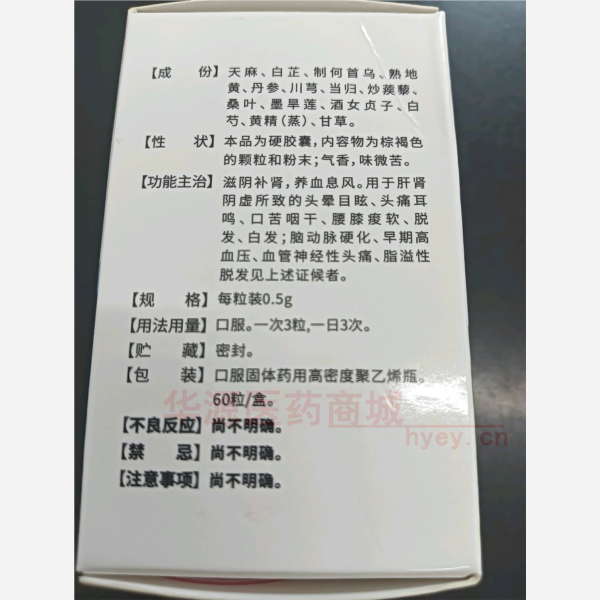 【成　份】天麻、白芷、制何首乌、熟地
黄、丹参、川芎、当归、炒蒺藜、
桑叶、墨旱莲、酒女贞子、白
芍、黄精(蒸)、甘草。
【性　状】本品为硬胶囊，内容物为棕褐色
的颗粒和粉末；气香，味微苦。
【功能主治】滋阴补肾，养血息风。用于肝肾
阴虚所致的头晕目眩、头痛耳
鸣、口苦咽干、腰膝痠软、脱
发、白发；脑动脉硬化、早期高
血压、血管神经性头痛、脂溢性
脱发见上述证候者。
【规　格】每粒装0.5g
【用法用量】口服。一次3粒,一日3次。
【贮　藏】密封。
【包　装】口服固体药用高密度聚乙烯瓶。
60粒/盒。
华源医药商城
hyey.cn
【不良反应】尚不明确。
【禁　忌】尚不明确。
【注意事项】尚不明确。